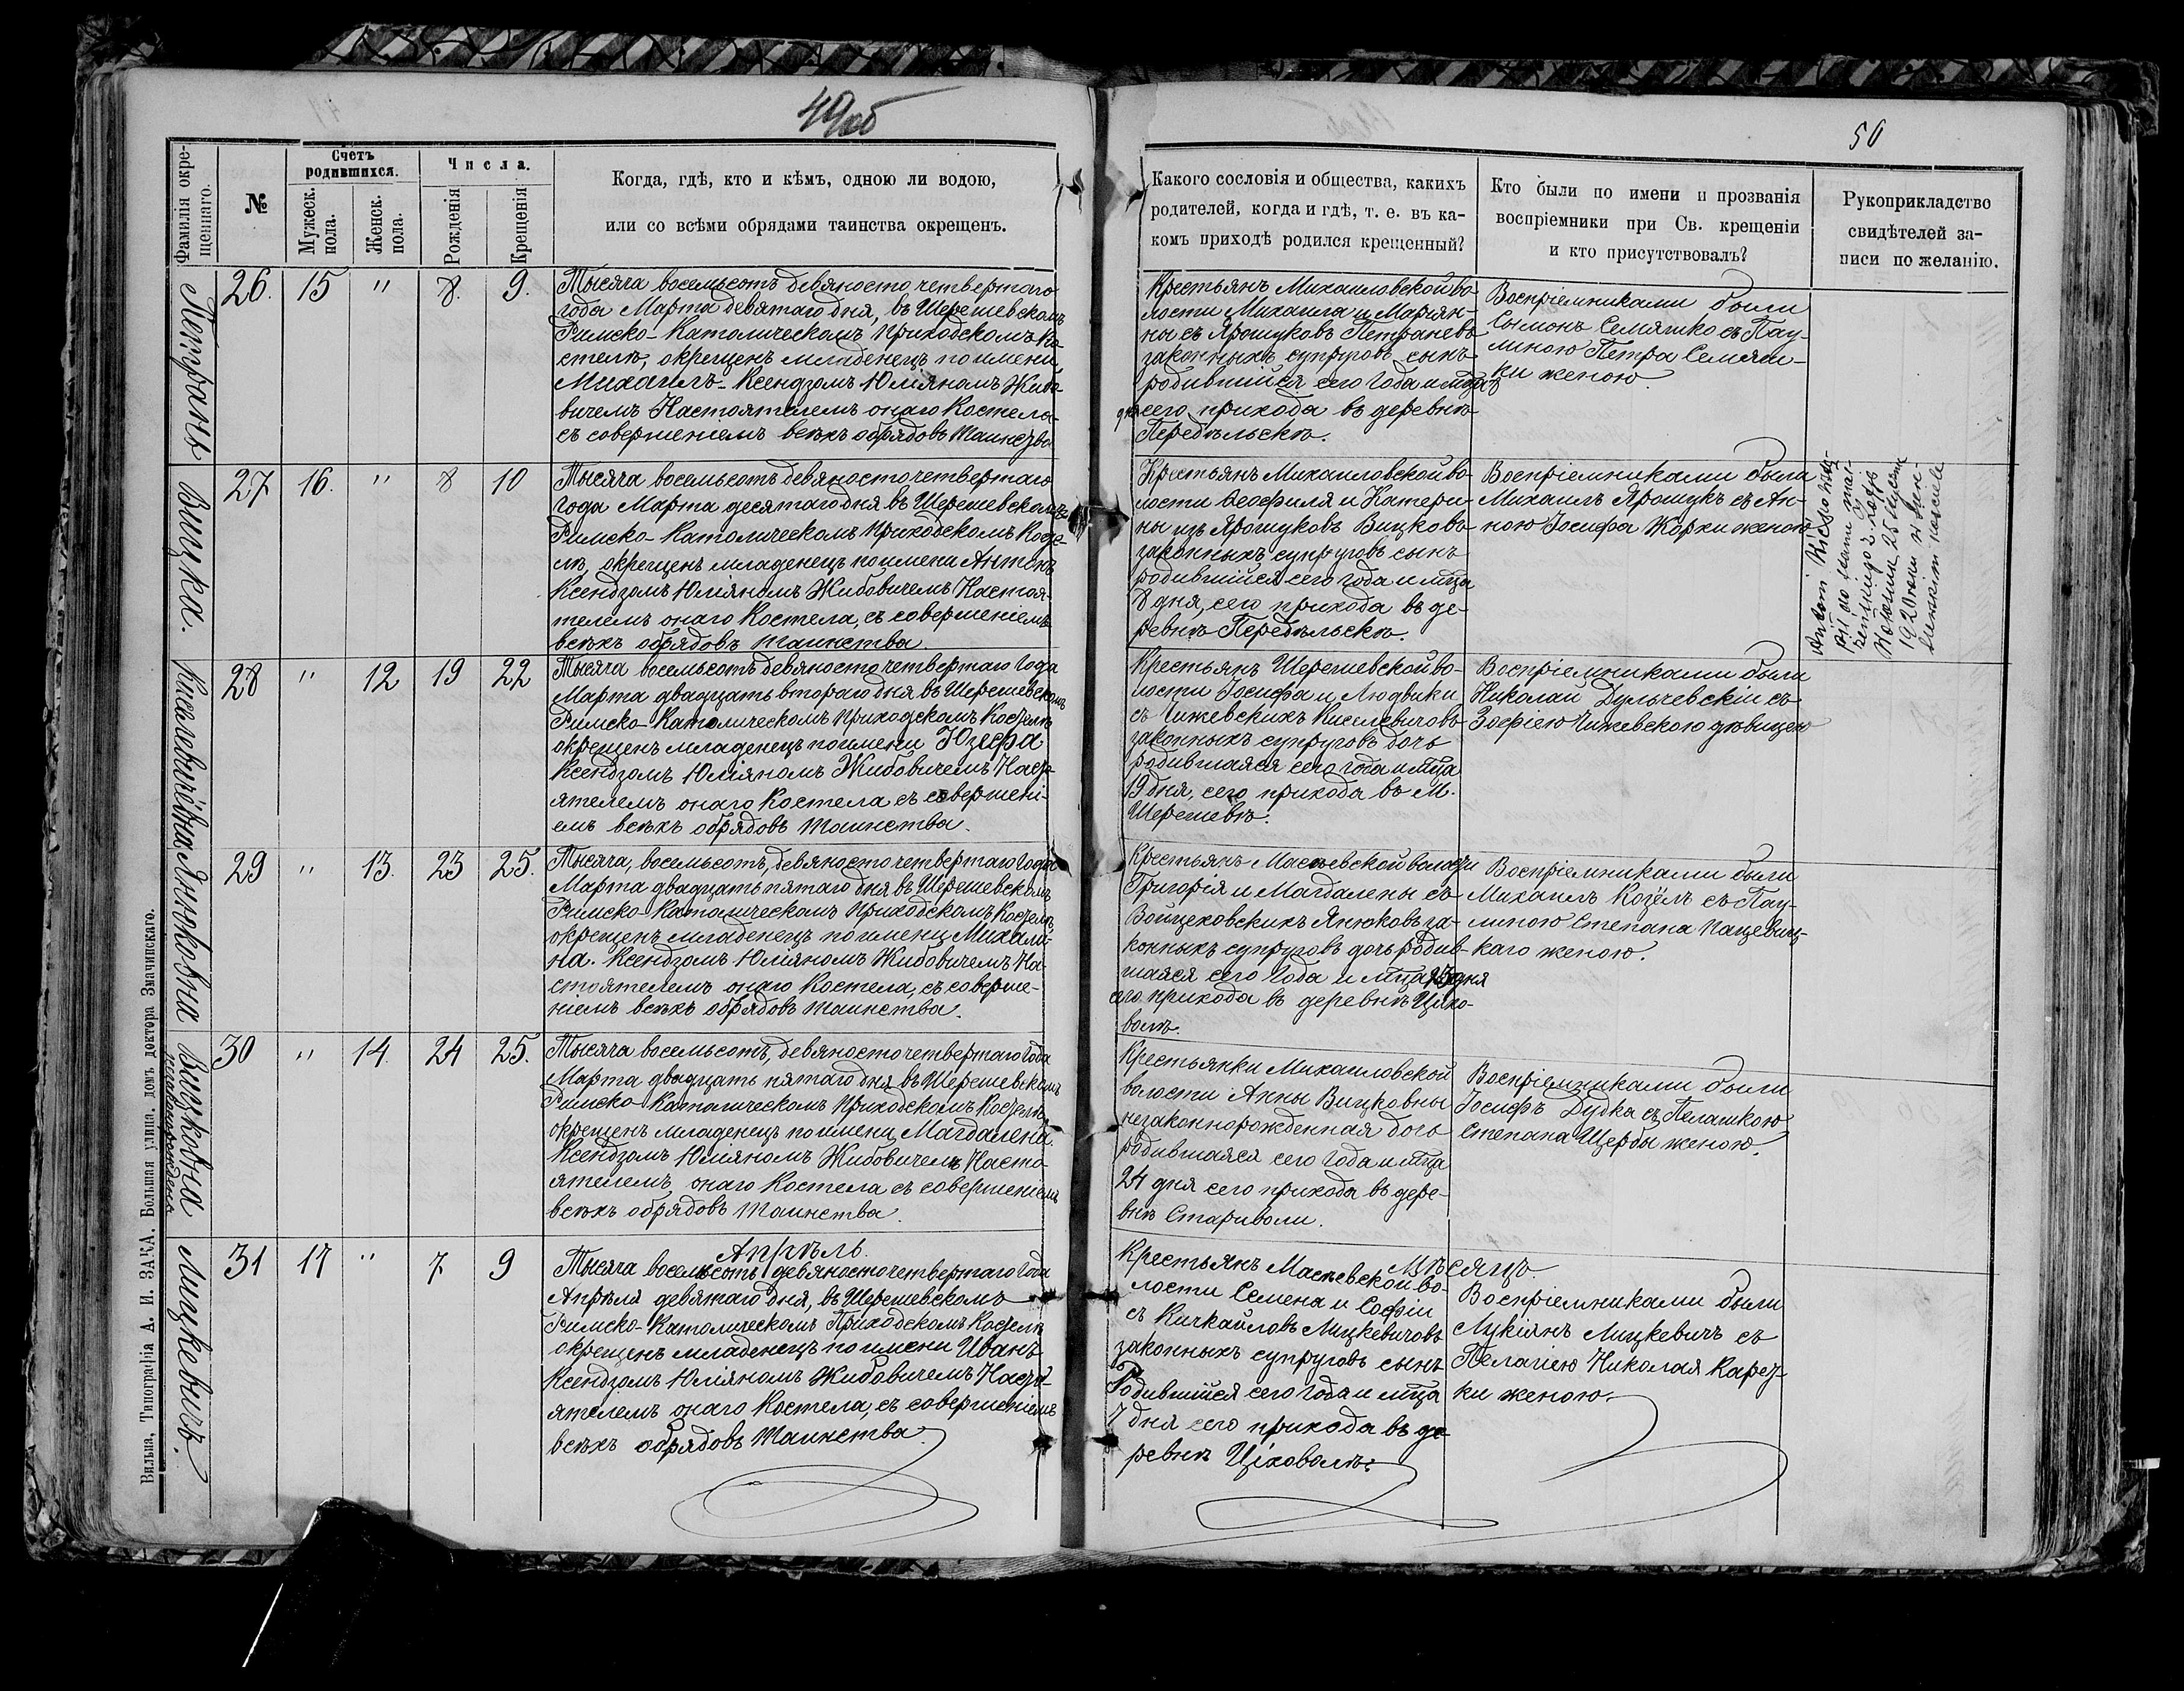 49об
50
Фамилія окре-
щеннаго.
№
Счетъ
родившихся.
Мужеск.
пола.
Женск.
пола.
Числа.
Рожденія
Крещенія
Когда, гдѣ, кто и кѣмъ, одною ли водою,
или со всѣми обрядами таинства окрещенъ.
Какого сословія и общества, какихъ
родителей, когда и гдѣ, т. е. въ ка-
комъ приходѣ родился крещенный?
Кто были по имени и прозванія
воспріемники при Св. крещеніи
и кто присутствовалъ?
Рукоприкладство
свидѣтелей за-
писи по желанію.
Петрань
26. 15 " 8. 9.
Тысяча восемьсотъ девяносто четвертаго
года Марта девятаго дня, въ Шерешевскомъ
Римско-Католическомъ Приходскомъ Ко-
стелѣ, окрещенъ младенецъ по имени
Михаилъ Ксендзомъ Юліяномъ Жибо-
вичемъ Настоятелемъ онаго Костела
съ совершеніемъ всѣхъ обрядовъ Таинства
Крестьянъ Михаиловской во-
лости Михаила и Маріян-
ны съ Ярошуковъ Петраневъ
законныхъ супруговъ сынъ
родившійся сего года и мѣсца 8
дня сего прихода въ деревнѣ
Передѣльскѣ.
Воспріемниками были
Сымонъ Семяшко съ Пау-
линою Петра Семяш-
ки женою
Вицка.
27 16. " 8 10
Тысяча восемьсотъ девяносто четвертаго
года Марта десятаго дня въ Шерешевскомъ
Римско-Католическомъ Приходскомъ Косте-
лѣ, окрещенъ младенецъ по имени Антонъ
Ксендзомъ Юліяномъ Жибовичемъ Настоя-
телемъ онаго Костела, съ совершеніемъ
всѣхъ обрядовъ таинства
Крестьянъ Михаиловской во-
лости Ѳеофиля и Катери-
ны изъ Ярошуковъ Вицковъ
законныхъ супруговъ сынъ
родившійся сего года и мѣсца
8 дня, сего прихода въ де-
ревнѣ Передѣльскѣ.
Воспріемниками были
Михаилъ Ярошукъ съ Ан-
ною Іосифа Жорки женою
Киселевичёвна
28 " 12 19 22
Тысяча восемьсотъ девяносто четвертаго года
Марта двадцать втораго дня въ Шерешевскомъ
Римско-Католическомъ Приходскомъ Костелѣ
окрещенъ младенецъ по имени Юзефа
Ксендзомъ Юліяномъ Жибовичемъ Насто-
ятелемъ онаго Костела съ совершені-
емъ всѣхъ обрядовъ таинства.
Крестьянъ Шерешевской во-
лости Іосифа и Людвики
съ Чижевскихъ Киселевичовъ
законныхъ супруговъ дочь
родившаяся сего года и мѣсца
19 дня, сего прихода въ М.
Шерешевѣ.
Воспріемниками были
Николай Дульчевскій съ
Зофіею Чижевскою дѣвицею
Янюковна
29 " 13. 23 25.
Тысяча, восемьсотъ, девяносто четвертаго года
Марта двадцать пятаго дня въ Шерешевскомъ
Римско-Католическомъ Приходскомъ Костелѣ
окрещенъ младенецъ по имени Михали-
на. Ксендзомъ Юліяномъ Жибовичемъ На-
стоятелемъ онаго Костела, съ соверше-
ніемъ всѣхъ обрядовъ таинства.
Крестьянъ Масѣевской волости
Григорія и Магдалены съ
Войцеховскихъ Янюковъ за-
конныхъ супруговъ дочь родив-
шаяся сего года и мѣсца 23 дня
сего прихода въ деревнѣ Цѣхо-
волѣ.
Воспріемниками были
Михаилъ Козёлъ съ Пау-
линою Степана Пацевич-
каго женою.
Вицковна
незаконорожденя
30 " 14. 24 25.
Тысяча восемьсотъ, девяносто четвертаго года
Марта двадцать пятаго дня въ Шерешевскомъ
Римско-Католическомъ Приходскомъ Костелѣ
окрещенъ младенецъ по имени Магдалена.
Ксендзомъ Юліяномъ Жибовичемъ Насто-
ятелемъ онаго Костела съ совершеніемъ
всѣхъ обрядовъ таинства.
Крестьянки Михаиловской
волости Анны Вицковны
незаконнорожденная дочь
родившаяся сего года и мѣсца
24 дня сего прихода въ дере-
внѣ Стариволи.
Воспріемниками были
Іосифъ Дудка съ Пелашкою
Степана Щербы женою.
Апрѣль.
Мѣсяцъ.
Лицкевичъ.
31 17 " 7 9
Тысяча восемьсотъ девяносто четвертаго года
Апрѣля девятаго дня, въ Шерешевскомъ
Римско-Католическомъ Приходскомъ Костелѣ
окрещенъ младенецъ по имени Иванъ
Ксендзомъ Юліяномъ Жибовичемъ Насто-
ятелемъ онаго Костела, съ совершеніемъ
всѣхъ обрядовъ Таинства
Крестьянъ Масѣевской во-
лости Семена и Софіи
съ Кичкайловъ Лицкевичовъ
законныхъ супруговъ сынъ
Родившійся сего года и мѣсца
7 дня сего прихода въ де-
ревнѣ Цѣховолѣ.
Воспріемниками были
Лукіянъ Лицкевичъ съ
Пелагіею Николая Карет-
ки женою.
Вильна, Типографія А. И. ЗАКА. Большая улица. домъ доктора Змачинскаго.